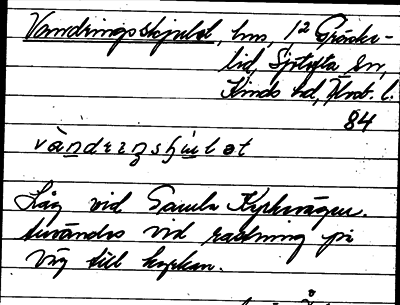 Vandringsskjulet, hus, 12 Gräske-
lid, Sjötofta sn,
Kinds hd, Älvsb. l.
84
vàndrıŋsʃʉlət
Låg vid Gamla Kyrkvägen.
Användes vid rastning på
väg till kyrkan.